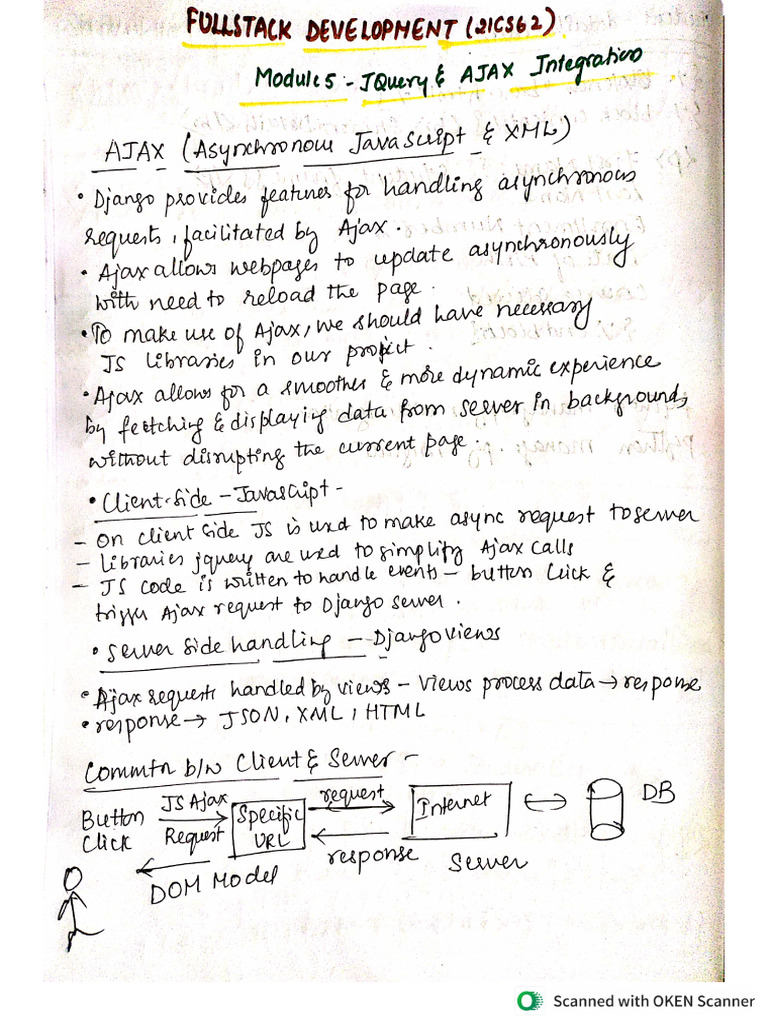 FULLSTACK DEVELOPMENT (21CS62)
Module 5 - JQuery & AJAX Integration
AJAX (Asynchronous JavaScript & XML)
• Django provides features for handling asynchronous
requests, facilitated by Ajax.
• Ajax allows webpages to update asynchronously
with need to reload the page.
• To make use of Ajax, we should have necessary
JS libraries in our project.
• Ajax allows for a smoother & more dynamic experience
by fettching & displaying data from server in background,
without disrupting the current page.
• Client-Side - JavaScript -
- On client side JS is used to make async request to server
- Libraries jquery are used to simplify Ajax calls
- JS code is written to handle events - button click &
trigger Ajax request to Django server.
• Server side handling - Django views
• Ajax requests handled by views - views process data → response
• response → JSON, XML, HTML
Commtn b/w Client & Server -
Button Click
JS Ajax Request
Specific URL
request
response
Internet
Server
DB
DOM Model
Scanned with OKEN Scanner